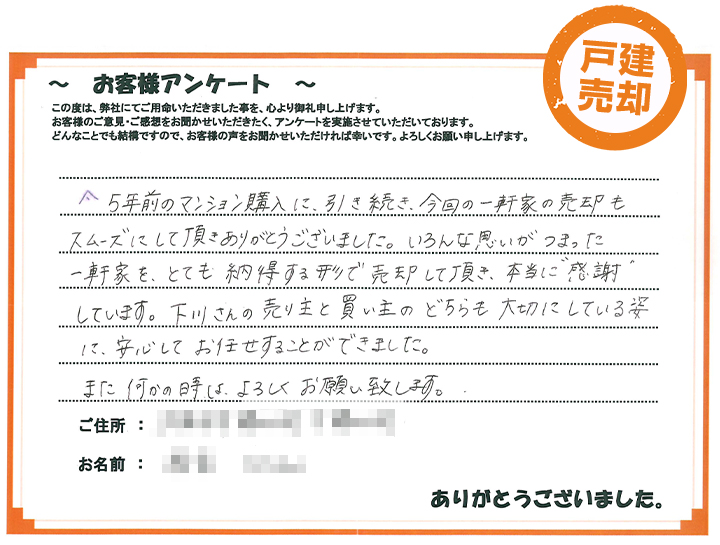 戸建
売却
～ お客様アンケート ～
この度は、弊社にてご用命いただきました事を、心より御礼申し上げます。
お客様のご意見・ご感想をお聞かせいただきたく、アンケートを実施させていただいております。
どんなことでも結構ですので、お客様の声をお聞かせいただければ幸いです。よろしくお願い申し上げます。
5年前のマンション購入に、引き続き、今回の一軒家の売却も
スムーズにして頂きありがとうございました。いろんな思いがつまった
一軒家を、とても納得する形で売却して頂き、本当に"感謝"
しています。下川さんの売り主と買い主のどちらも大切にしている姿
に、安心してお任せすることができました。
また何かの時は、よろしくお願い致します。
ご住所 ：
お名前 ：
ありがとうございました。